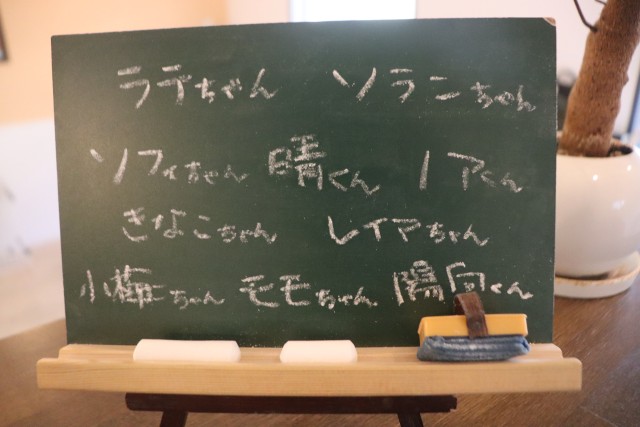 ラテちゃん ソラニちゃん
ソフィちゃん 晴くん ノアくん
きなこちゃん レイアちゃん
小梅ちゃん モモちゃん 陽向くん